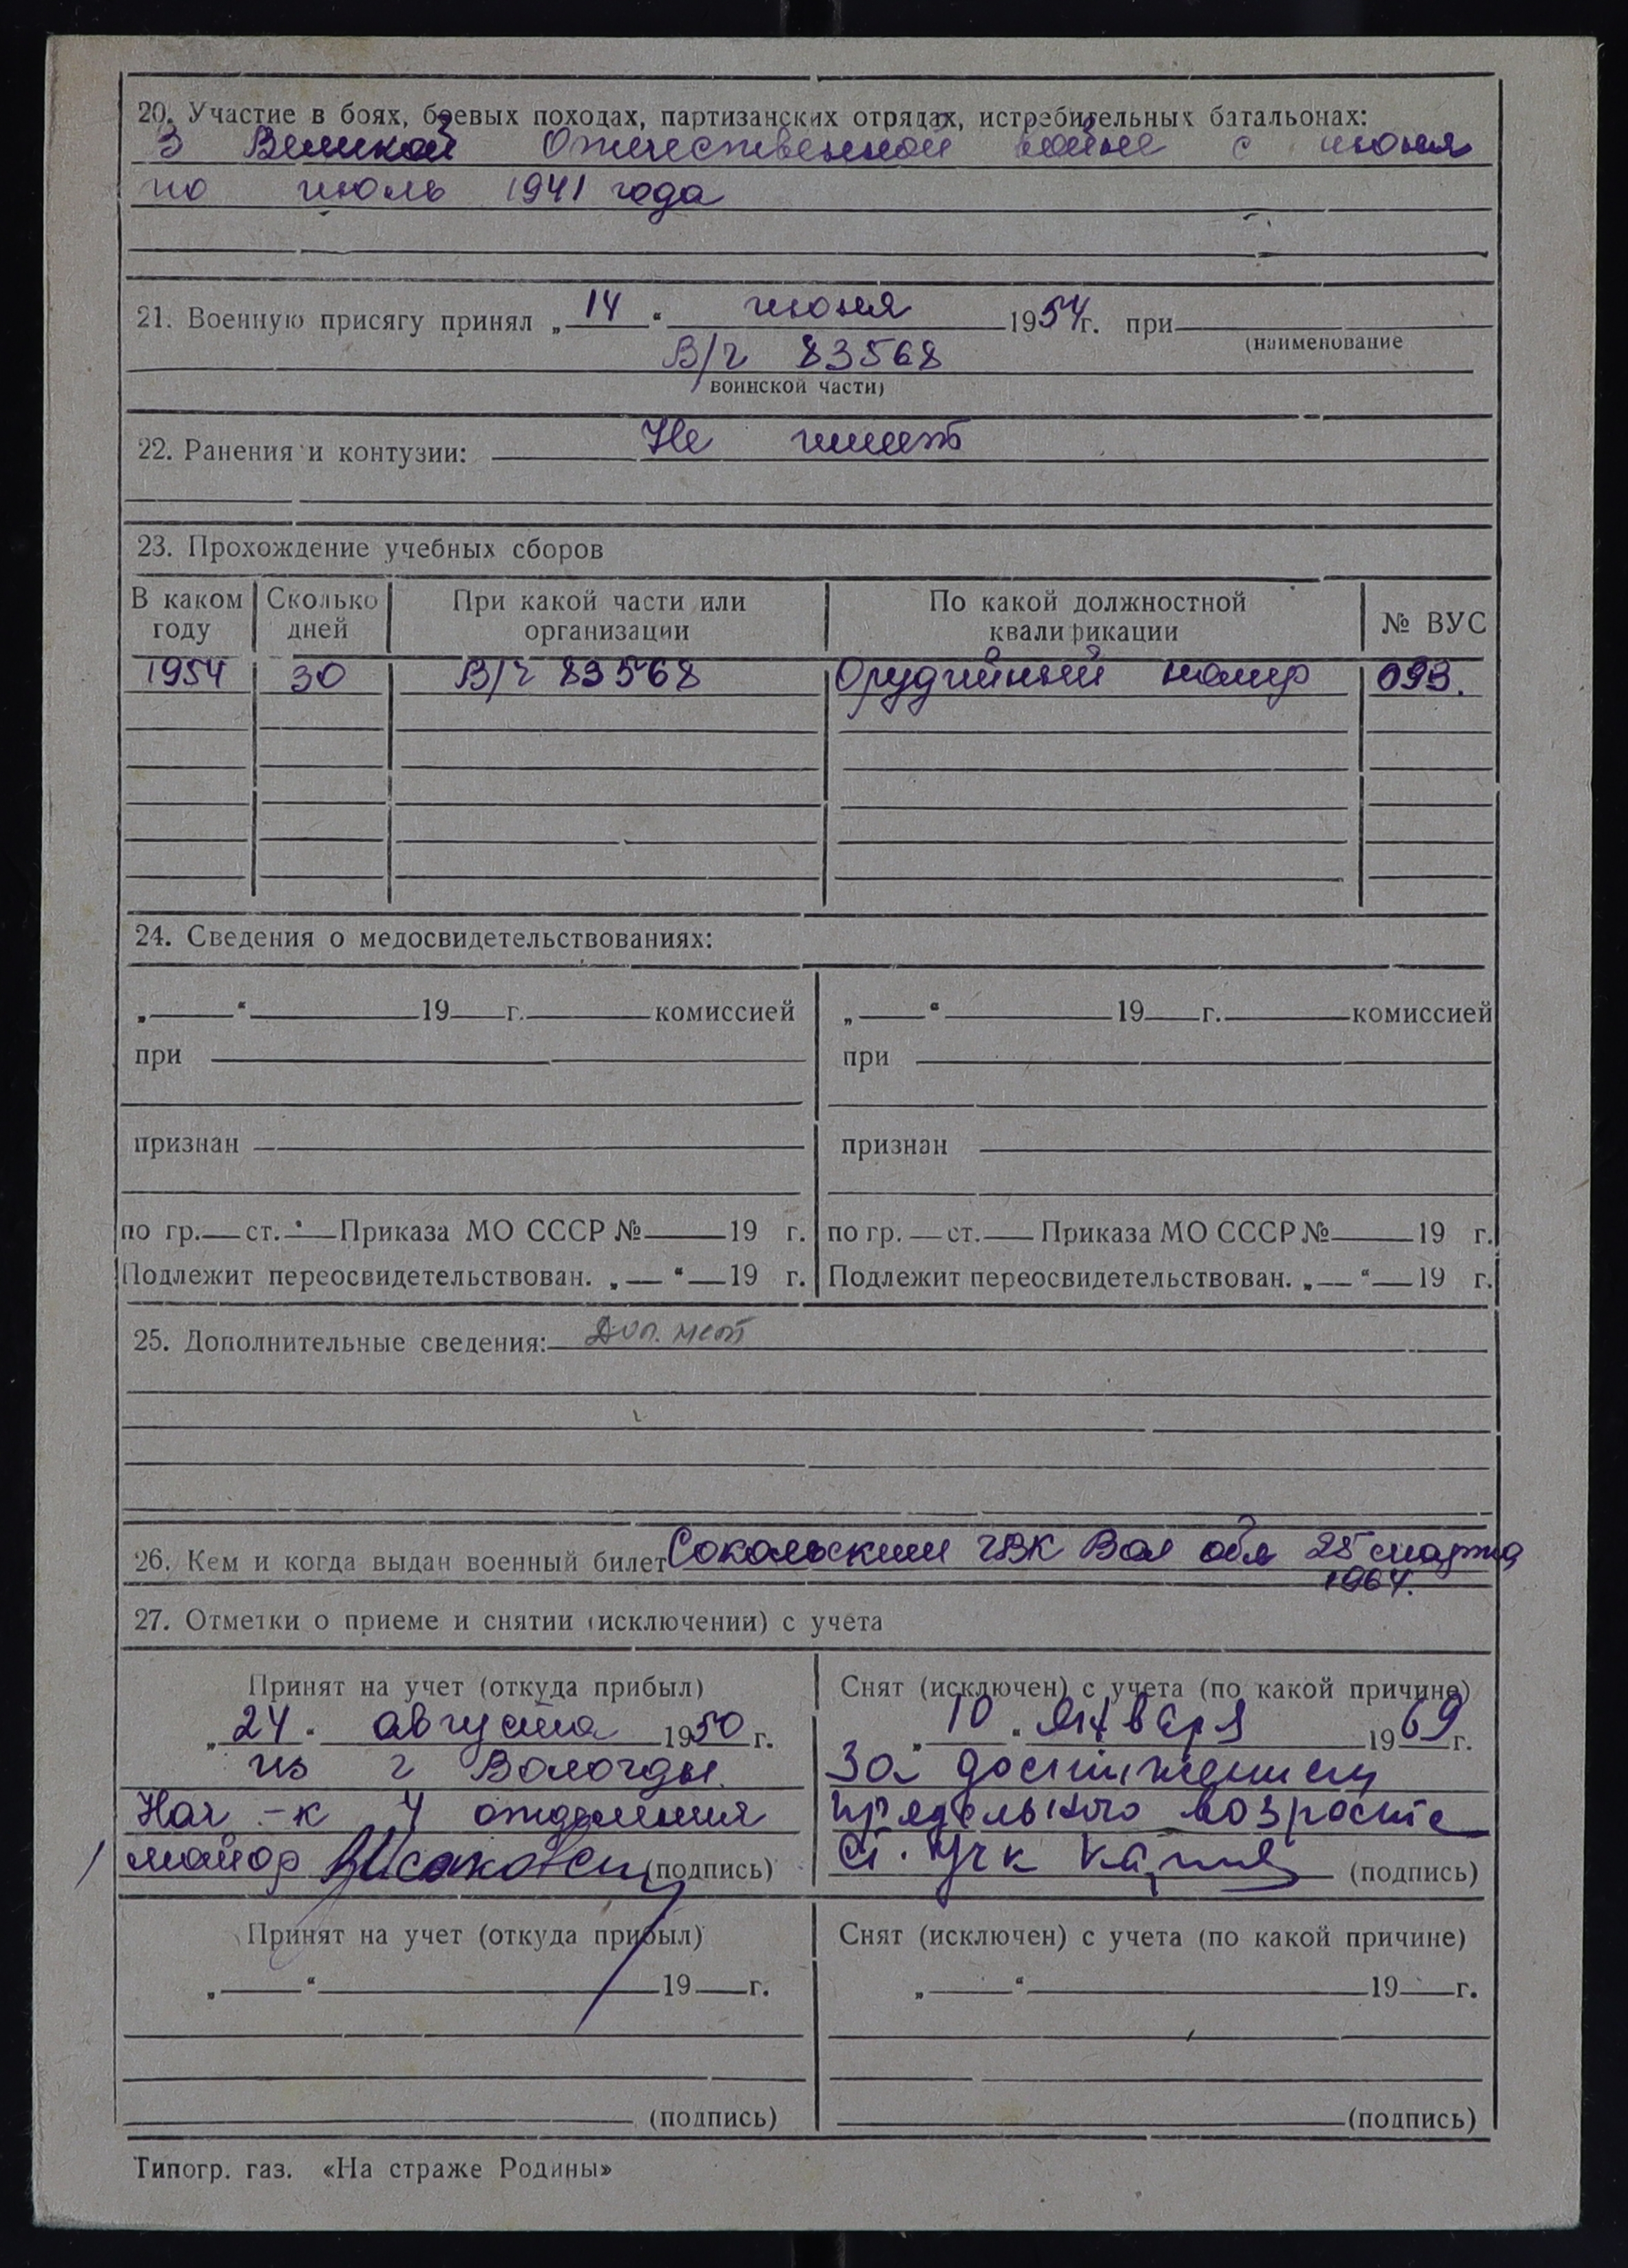 20. Участие в боях, боевых походах, партизанских отрядах, истребительных батальонах:
В Великой Отечественной войне с июня
по июль 1941 года
21. Военную присягу принял „14“ июня 1954г. при
(наименование
В/ч 83568
воинской части)
22. Ранения и контузии: Не имеет
23. Прохождение учебных сборов
В каком году Сколько дней При какой части или организации По какой должностной квалификации № ВУС
1954 30 В/ч 83568 Орудийный номер 093.
24. Сведения о медосвидетельствованиях:
„ “ 19 г. комиссией „ “ 19 г. комиссией
при при
признан признан
по гр. ст. Приказа МО СССР № 19 г. по гр. ст. Приказа МО СССР № 19 г.
Подлежит переосвидетельствован. „ “ 19 г. Подлежит переосвидетельствован. „ “ 19 г.
25. Дополнительные сведения: Доп. нет
26. Кем и когда выдан военный билет Сокольским ГВК Вол обл 25 марта
1964.
27. Отметки о приеме и снятии (исключении) с учета
Принят на учет (откуда прибыл) Снят (исключен) с учета (по какой причине)
„24“ августа 1950 г. „10“ января 1969 г.
из г Вологды. За достижением
Нач-к 4 отделения предельного возраста
майор (подпись) (подпись)
Принят на учет (откуда прибыл) Снят (исключен) с учета (по какой причине)
„ “ 19 г. „ “ 19 г.
(подпись) (подпись)
Типогр. газ. «На страже Родины»